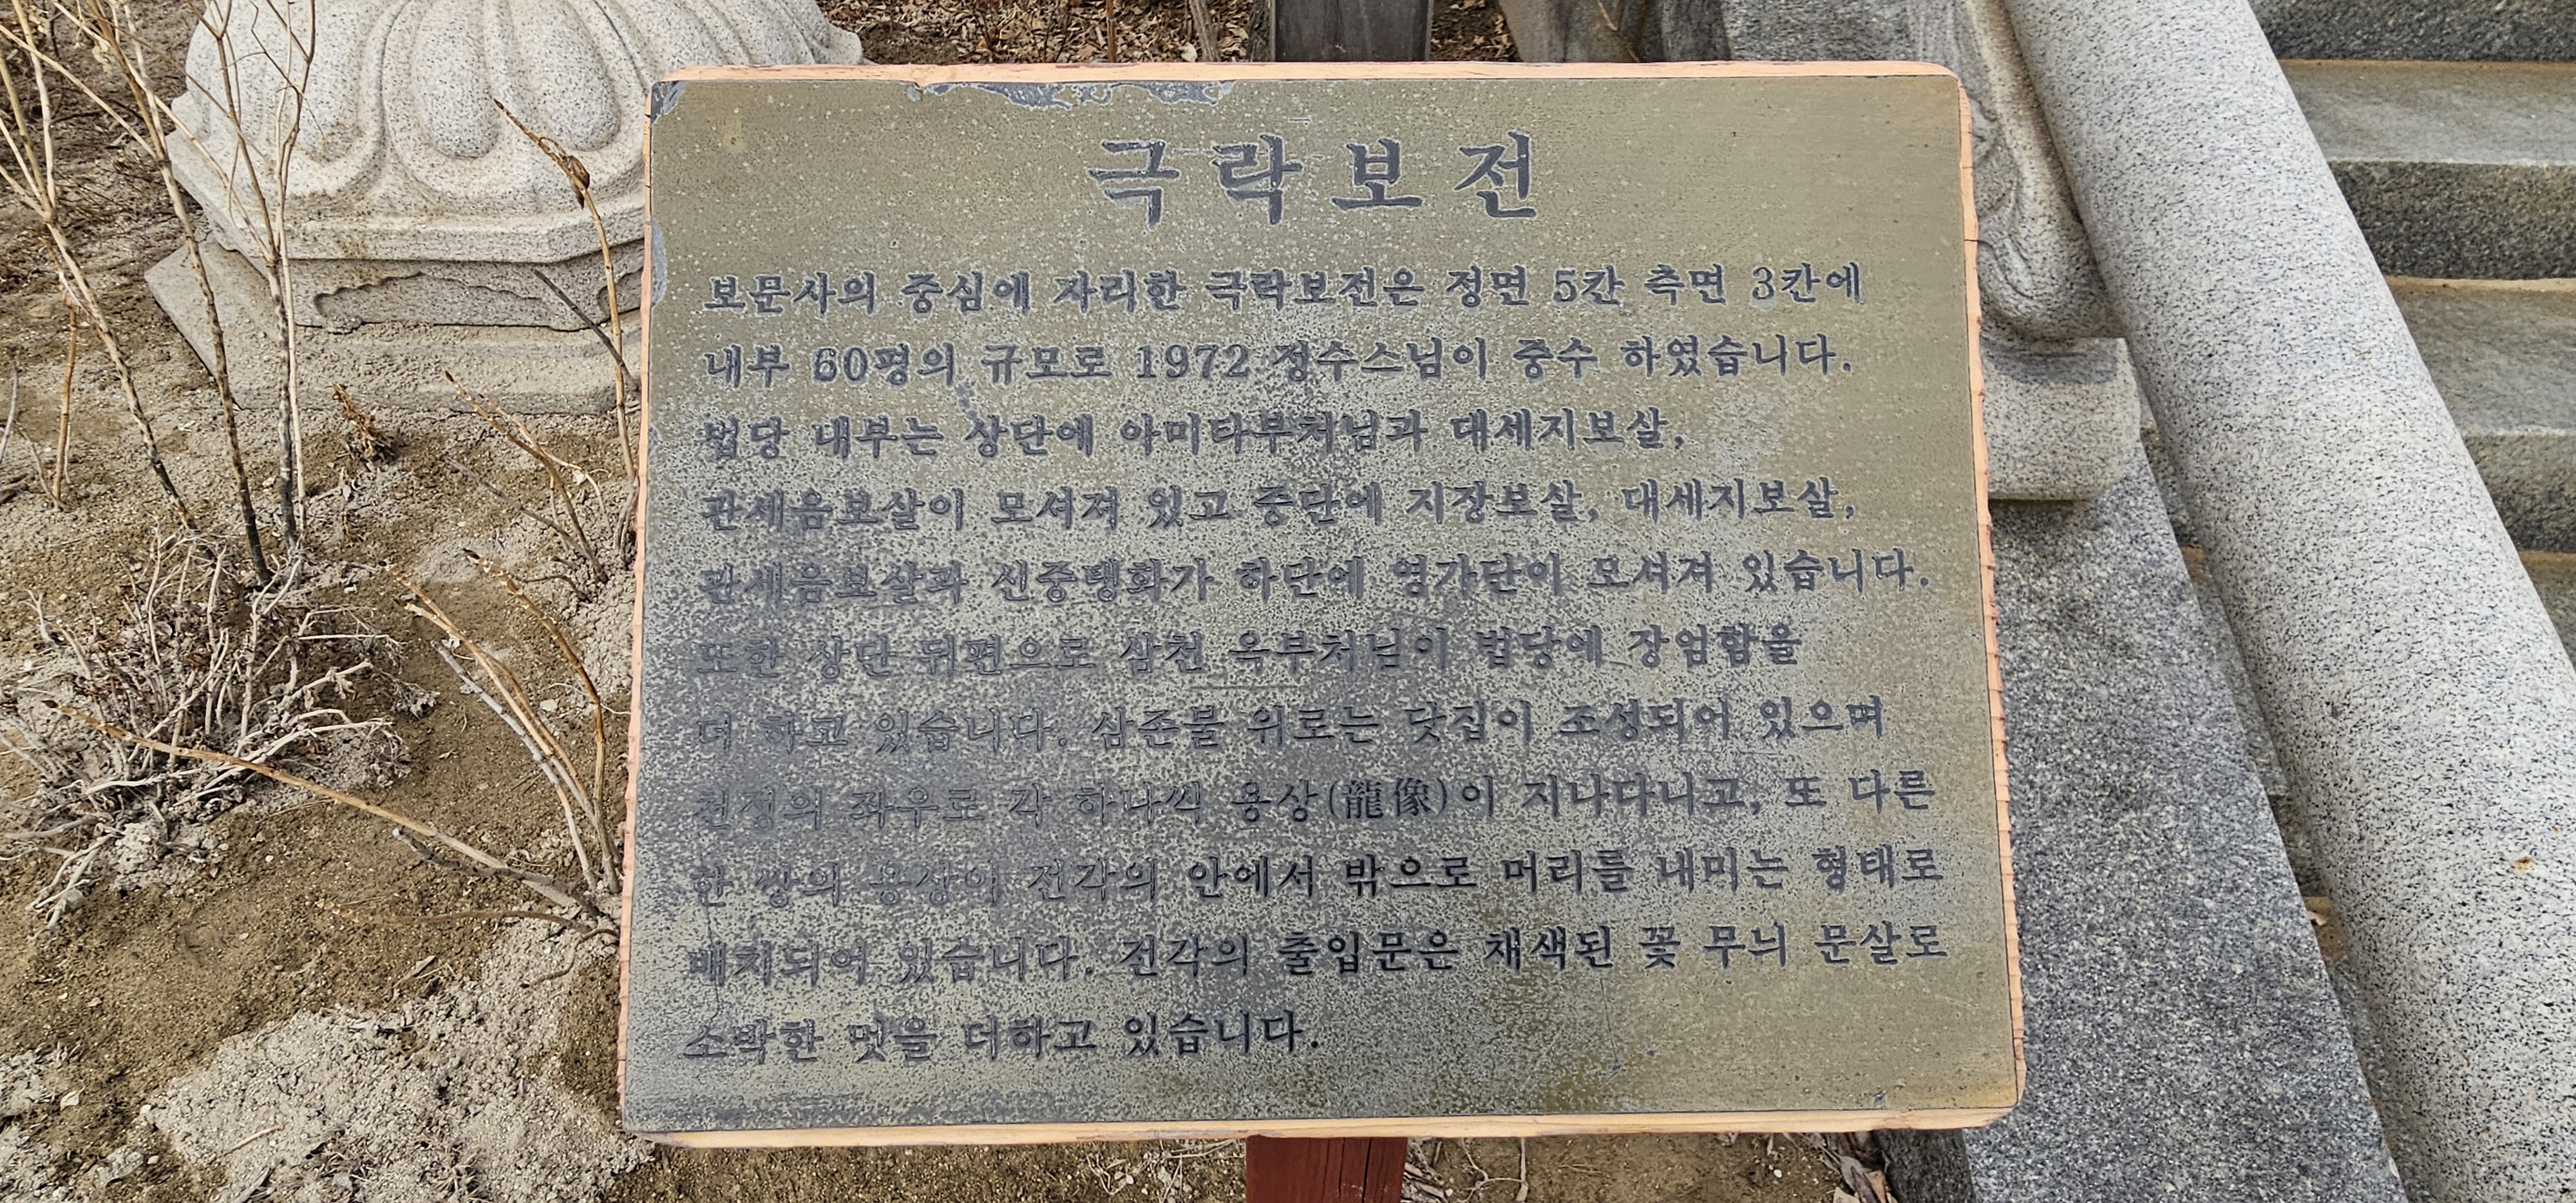 극락보전
보문사의 중심에 자리한 극락보전은 정면 5칸 측면 3칸에
내부 60평의 규모로 1972 정수스님이 중수 하였습니다.
법당 내부는 상단에 아미타부처님과 대세지보살,
관세음보살이 모셔져 있고 중단에 지장보살, 대세지보살,
관세음보살과 신중탱화가 하단에 영가단이 모셔져 있습니다.
또한 상단 뒤편으로 삼천 옥부처님이 법당에 장엄함을
더 하고 있습니다. 삼존불 위로는 닷집이 조성되어 있으며
천정의 좌우로 각 하나씩 용상(龍像)이 지나다니고, 또 다른
한 쌍의 용상이 전각의 안에서 밖으로 머리를 내미는 형태로
배치되어 있습니다. 전각의 출입문은 채색된 꽃 무늬 문살로
소박한 멋을 더하고 있습니다.